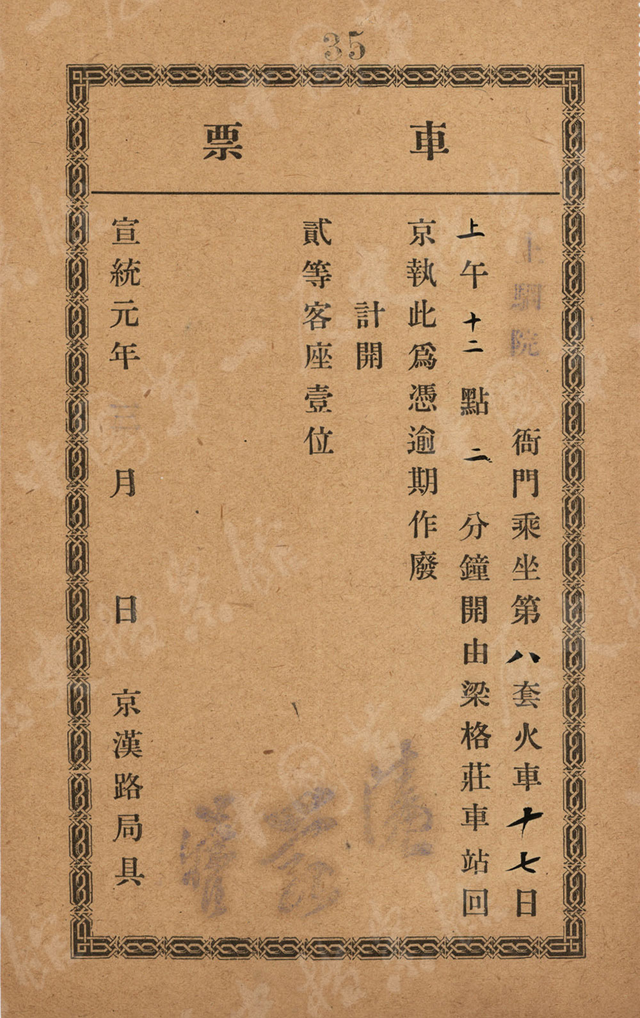 35
車票
上駟院衙門乘坐第八套火車十七日
上午十二點二分鐘開由梁格莊車站回
京執此爲憑逾期作廢
計開
貳等客座壹位
宣統元年三月 日 京漢路局具